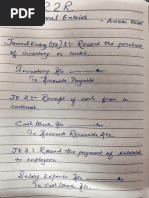 R2R
Journal Entries -
Journal Entry (JE) 1:- Record the purchase
of inventory on credit.
Inventory A/c. Dr
To Accounts Payable
JE 2:- Receipt of cash from a
customer.
Cash/Bank A/c Dr
To Account Receivable A/c.
JE 3:- Record the payment of salaries
to employees.
Salary Expense A/c Dr
To Cash/Bank A/c.